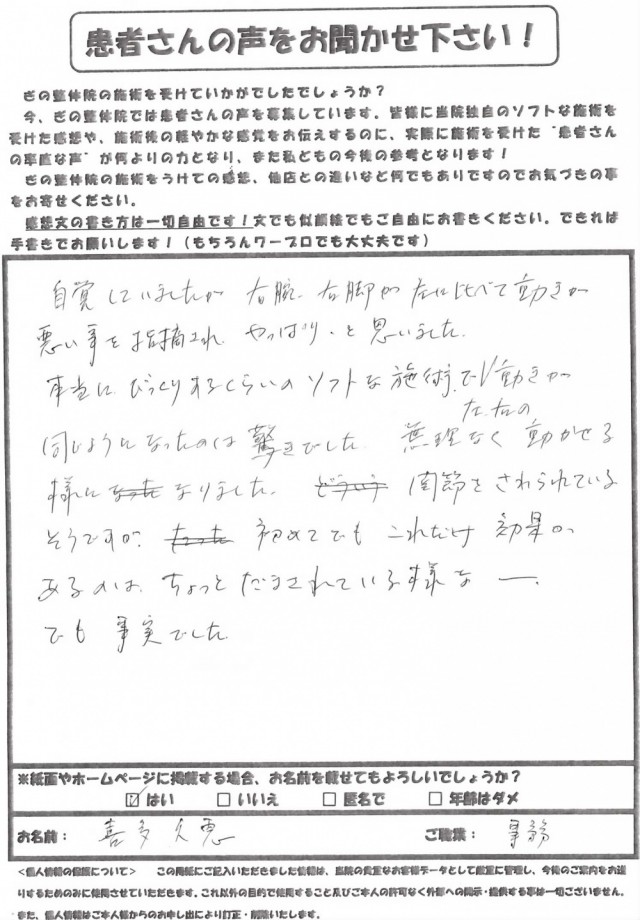 患者さんの声をお聞かせ下さい！
ぎの整体院の施術を受けていかがでしたでしょうか？
今、ぎの整体院では患者さんの声を募集しています。皆様に当院独自のソフトな施術を
受けた感想や、施術後の軽やかな感覚をお伝えするのに、実際に施術を受けた“患者さん
の率直な声”が何よりの力となり、また私どもの今後の参考となります！
ぎの整体院の施術をうけての感想、他店との違いなど何でもありですのでお気づきの事
をお寄せください。
感想文の書き方は一切自由です！文でも似顔絵でもご自由にお書きください。できれば
手書きでお願いします！（もちろんワープロでも大丈夫です）
自覚していましたが 右腕、右脚が 左に比べて動きが
悪い事を指摘され やっぱり、と思いました。
本当に びっくりするくらいの ソフトな施術で 左、右の動きが
同じようになったのは 驚きでした。無理なく 動かせる
様に なりました。 関節をさわられている
そうですが、 初めてでも これだけ 効果が
あるのは、ちょっと だまされている様な ー、
でも 事実でした
※紙面やホームページに掲載する場合、お名前を載せてもよろしいでしょうか？
☑はい □いいえ □匿名で □年齢はダメ
お名前： 喜多久恵 ご職業： 事務
＜個人情報の保護について＞ この用紙にご記入いただきました情報は、当院の貴重なお客様データとして厳重に管理し、今後のご案内をお送
りするためのみに使用させていただきます。これ以外の目的で使用すること及びご本人の許可なく外部への開示・提供する事は一切ございません。
また、個人情報はご本人様からのお申し出により訂正・削除いたします。